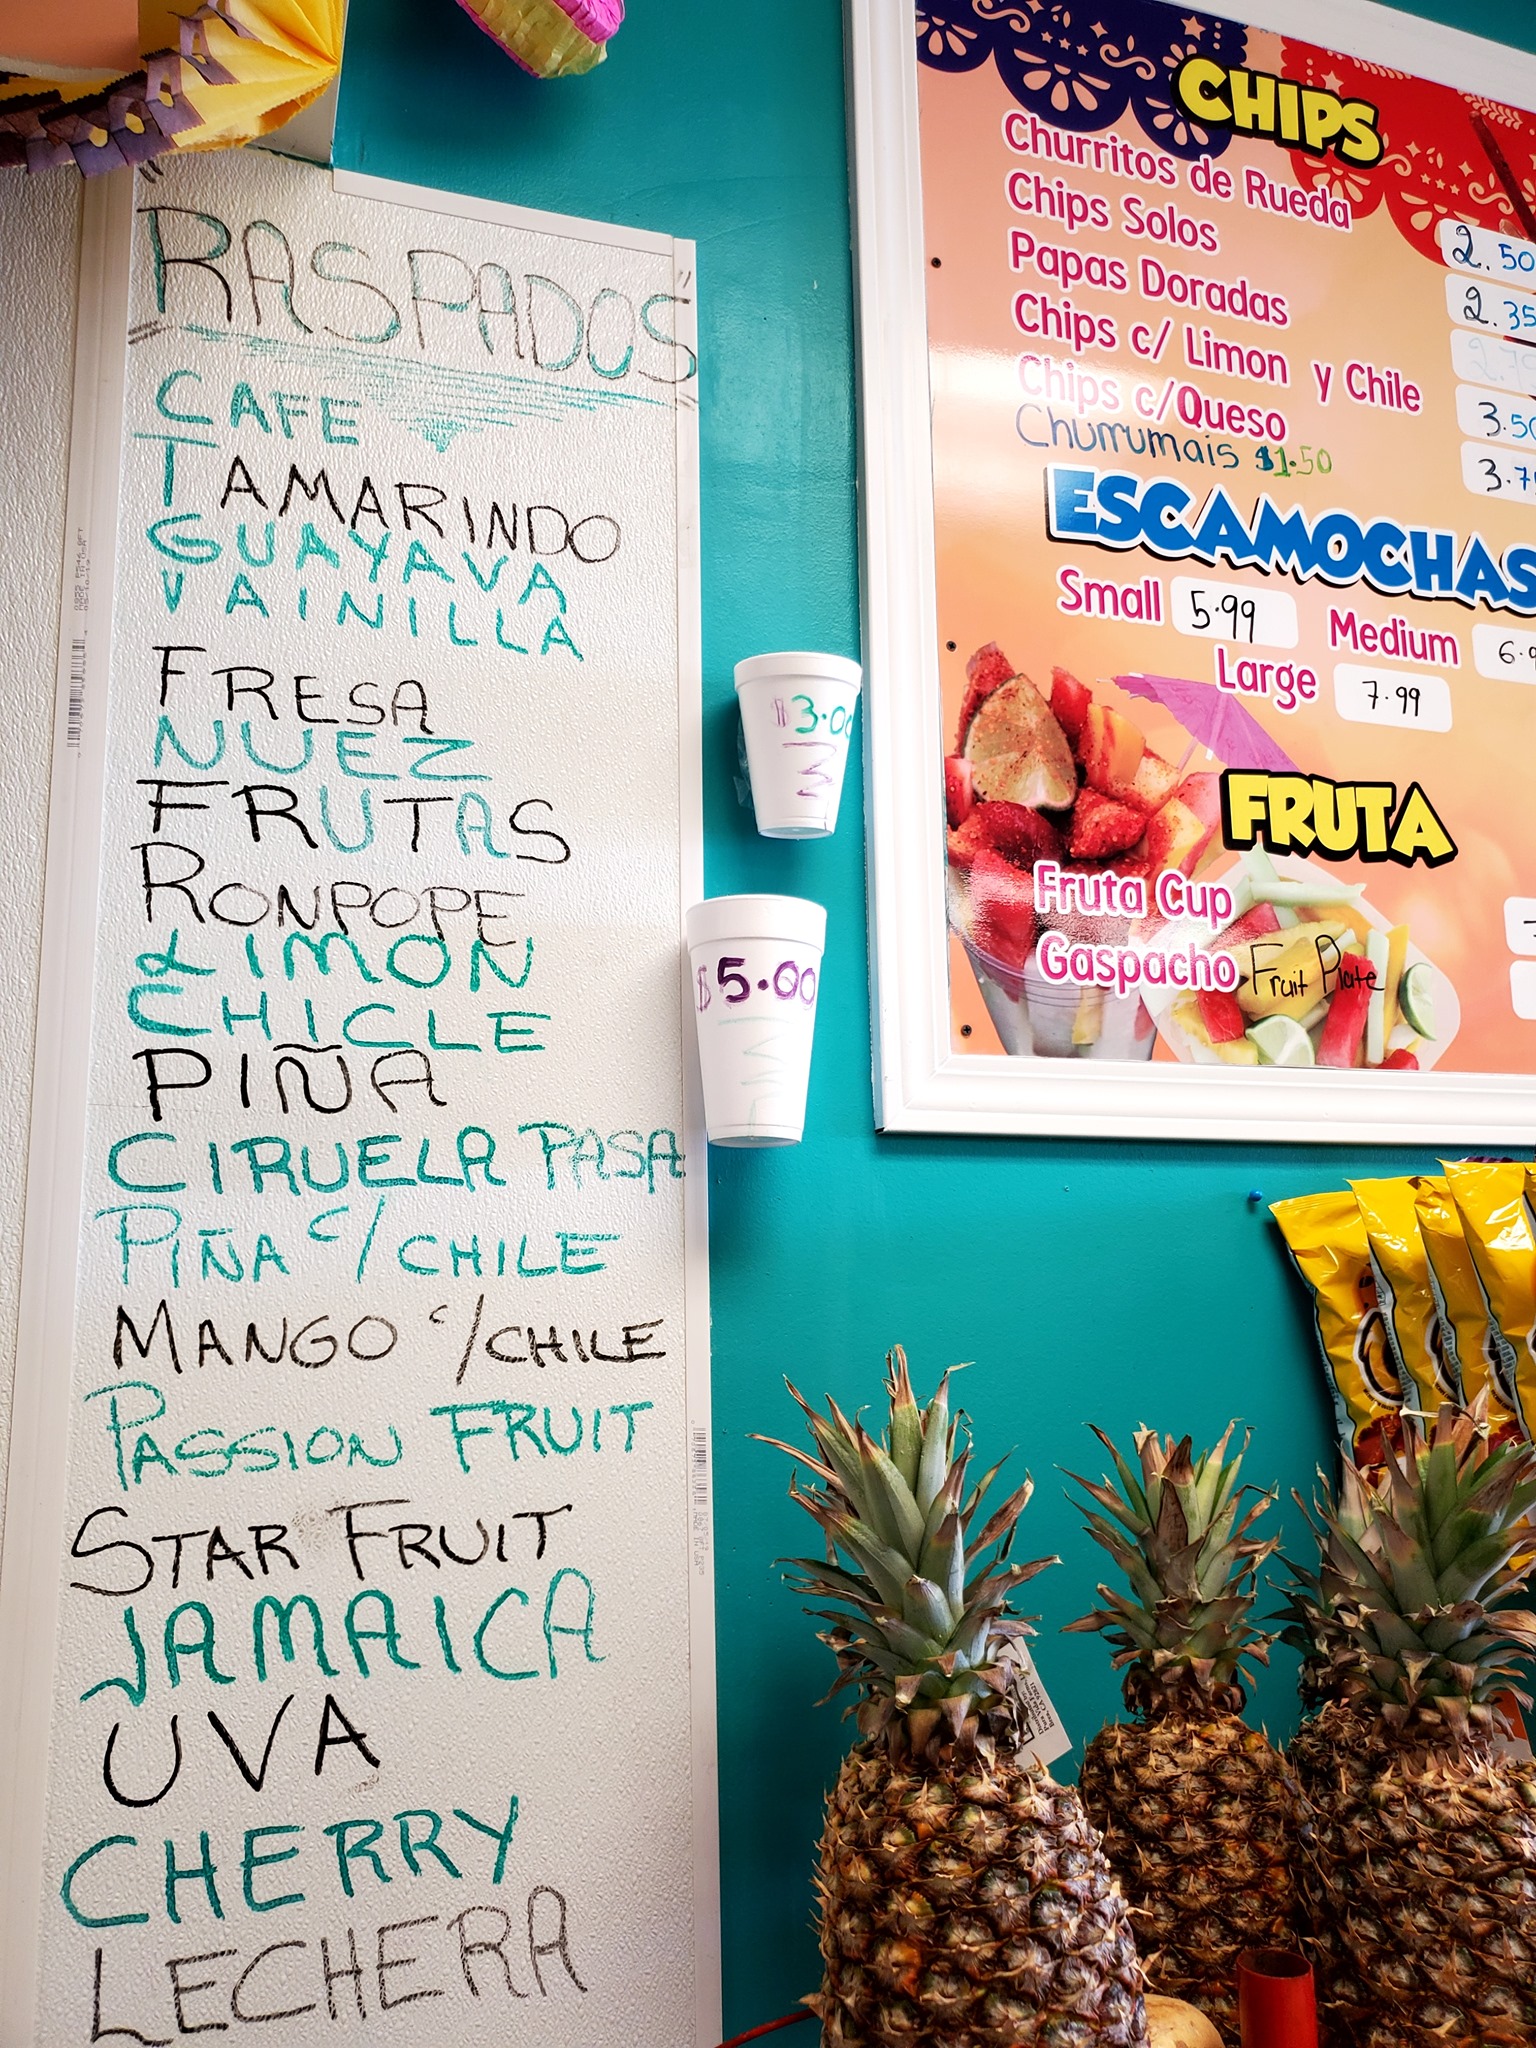 RASPADOS
CAFE
TAMARINDO
GUAYAVA
VAINILLA
FRESA
NUEZ
FRUTAS
RONPOPE
LIMON
CHICLE
PIÑA
CIRUELA PASA
PIÑA c/CHILE
MANGO c/CHILE
PASSION FRUIT
STAR FRUIT
JAMAICA
UVA
CHERRY
LECHERA
$3.00
$5.00
CHIPS
Churritos de Rueda 2.50
Chips Solos 2.35
Papas Doradas
Chips c/ Limon y Chile 3.50
Chips c/Queso
Churrumais $1.50
ESCAMOCHAS
Small 5.99 Medium
Large 7.99
FRUTA
Fruta Cup
Gaspacho Fruit Plate